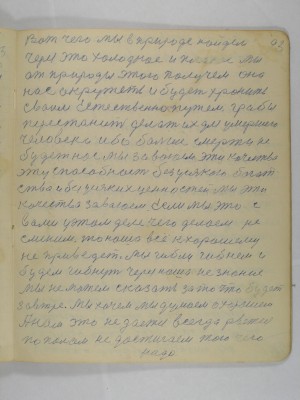 63
Вот чего мы в природе найдем
через это холодное и плохое мы
от природы этого получем оно
нас окружит и будет хранить
своим естественно путем грабы
перестанит делат их для умершего
человека ибо болше смерти не
будет нас мы завоюем эти качества
эту способност без всяких богат
ства и без всяких ценностей мы эти
качества завоюем Если мы это с
вами у том деле чего делаем не
сменим то наша все к хорошему
не приведет. Мы гибли гибнем и
будем гибнуть через наше не знание
мы не можем сказать за то что будит
завтра. Мы хочем мы думаем о хорошем
А нам это не дается всегда рвется
по полам не достигаем того чего
надо